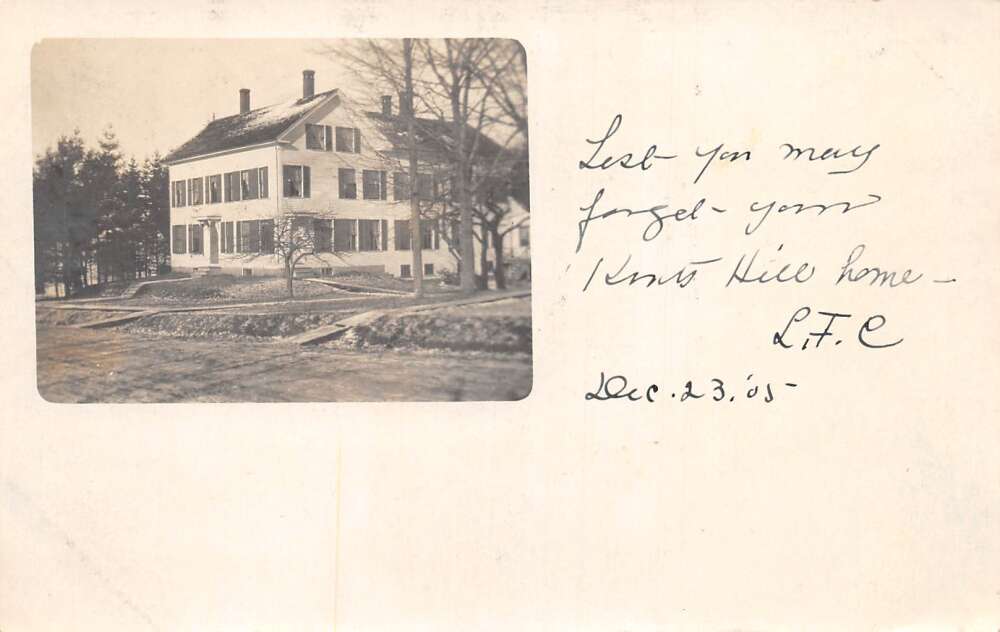 Lest you may
forget your
Kents Hill home -
L.F.C
Dec. 23. '05-